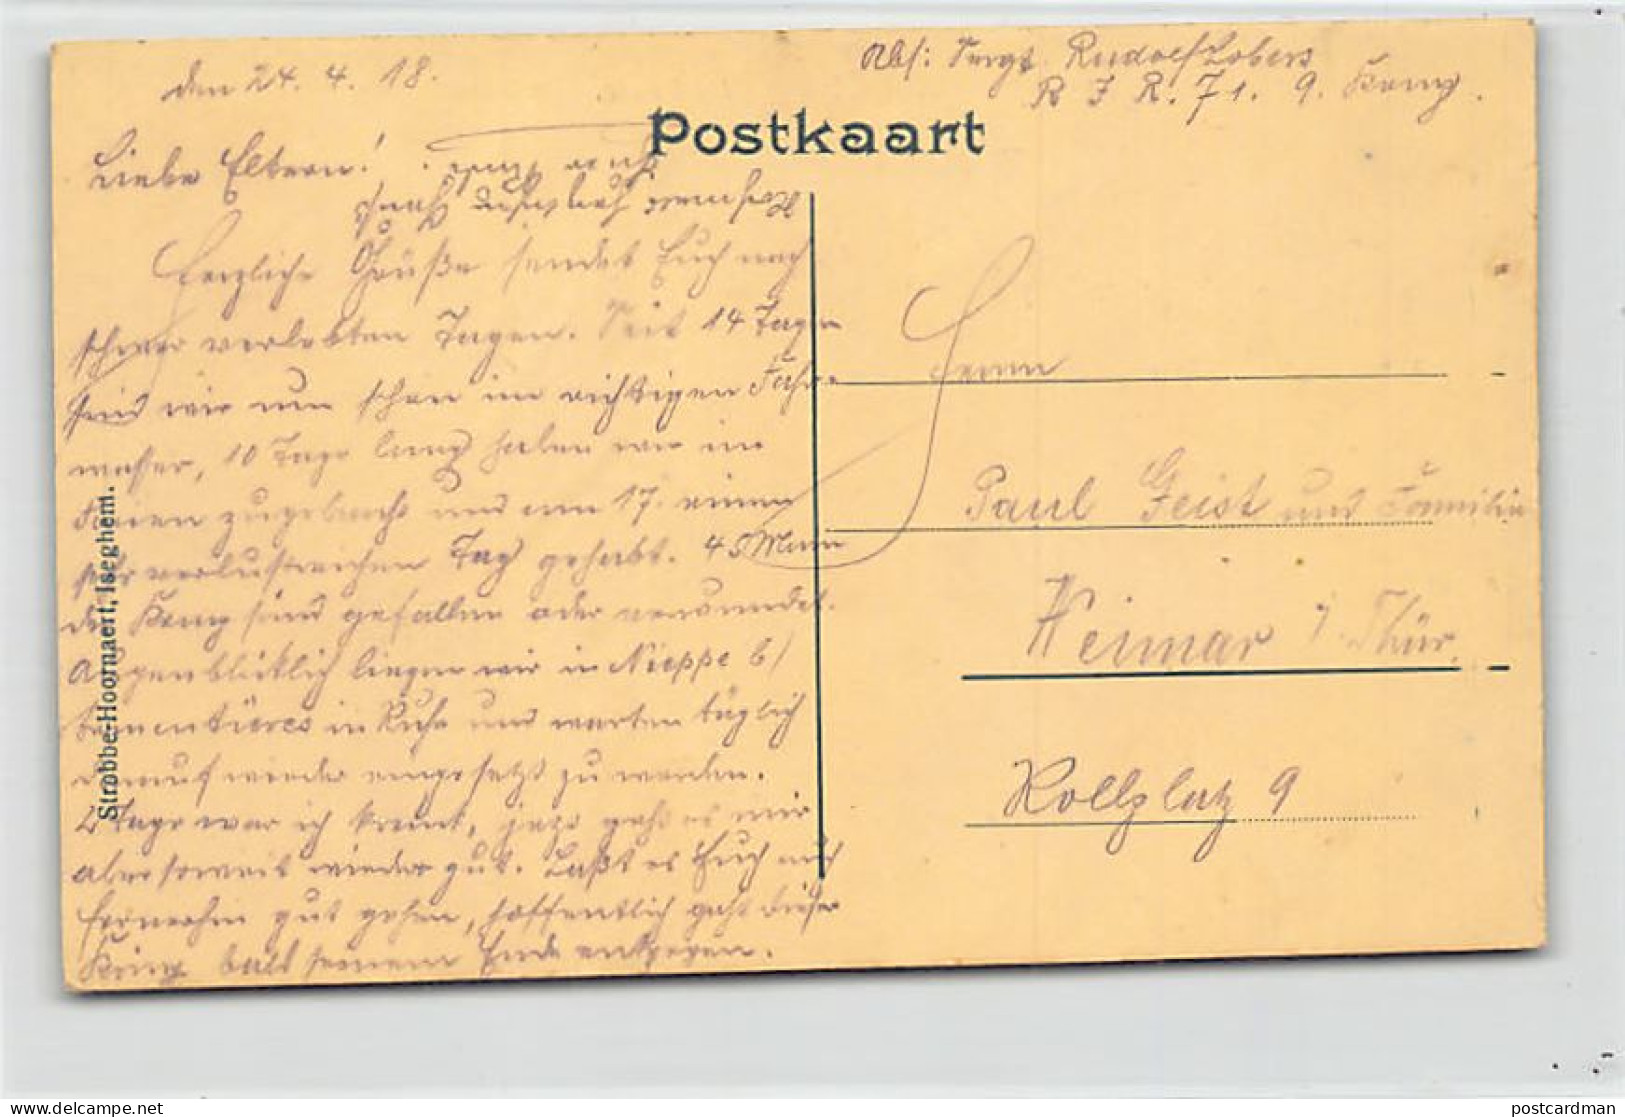 den 24. 4. 18.
Abs: Sergt. Rudolf Lobers
R J R. 71. 9. Komp.
Postkaart
Liebe Eltern!
Herzliche Grüße sendet Euch nach
schwer verlebten Tagen. Seit 14 Tagen
sind wir nun schon im richtigen Fahr-
wasser, 10 Tage lang haben wir im
Freien zugebracht und am 17. einen
sehr verlustreichen Tag gehabt. 45 Mann
der Komp sind gefallen oder verwundet.
Augenblicklich liegen wir in Nieppe b/
Armentieres in Ruhe und warten täglich
darauf wieder eingesetzt zu werden.
2 Tage war ich krank, jezt geht es mir
aber soweit wieder gut. Laßt es Euch auch
fernerhin gut gehen, hoffentlich geht dieser
Krieg bald seinem Ende entgegen.
Herrn
Paul Geist und Familie
Weimar i. Thür.
Rollplatz 9
Strobbe-Hoornaert, Iseghem.
postcardman